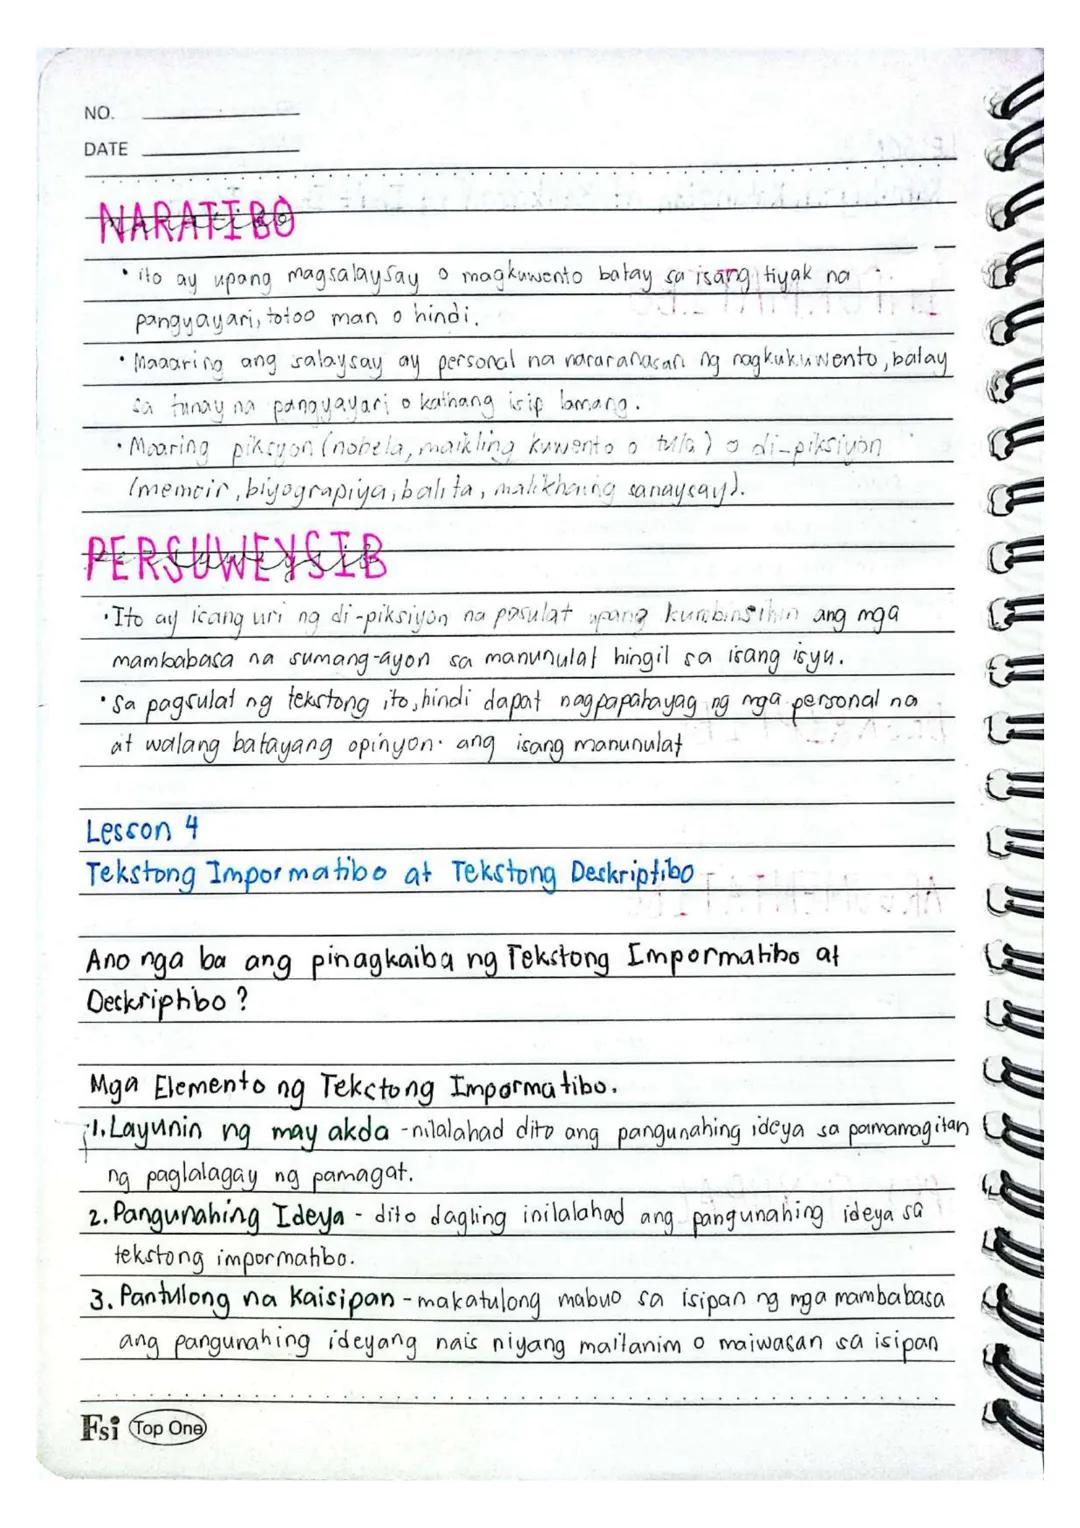 NO.
DATE
NARATIBO
• ito ay upang magsalaysay o magkuwento batay sa isang tiyak na
pangyayari, totoo man o hindi.
• Maaaring ang salaysay ay personal na nararanasan ng nagkukuwento, batay
sa tunay na pangyayari o kathang isip lamang.
• Maaring piksyon (nobela, maikling kuwento o tula) o di-piksiyon
(memoir, biyograpiya, balita, malikhaing sanaysay).
PERSUWEYSIB
• Ito ay isang uri ng di-piksiyon na pasulat upang kumbinsihin ang mga
mambabasa na sumang-ayon sa manunulat hingil sa isang isyu.
• Sa pagsulat ng tekstong ito, hindi dapat nagpapahayag ng mga personal na
at walang batayang opinyon. ang isang manunulat
Lesson 4
Tekstong Impormatibo at Tekstong Deskriptibo
Ano nga ba ang pinagkaiba ng Tekstong Impormatibo at
Deskriptibo?
Mga Elemento ng Tekstong Impormatibo.
1. Layunin ng may akda - nilalahad dito ang pangunahing ideya sa pamamagitan
ng paglalagay ng pamagat.
2. Pangunahing Ideya - dito dagling inilalahad ang pangunahing ideya sa
tekstong impormatibo.
3. Pantulong na Kaisipan - makatulong mabuo sa isipan ng mga mambabasa
ang pangunahing ideyang nais niyang maitanim o maiwasan sa isipan
Fsi Top One